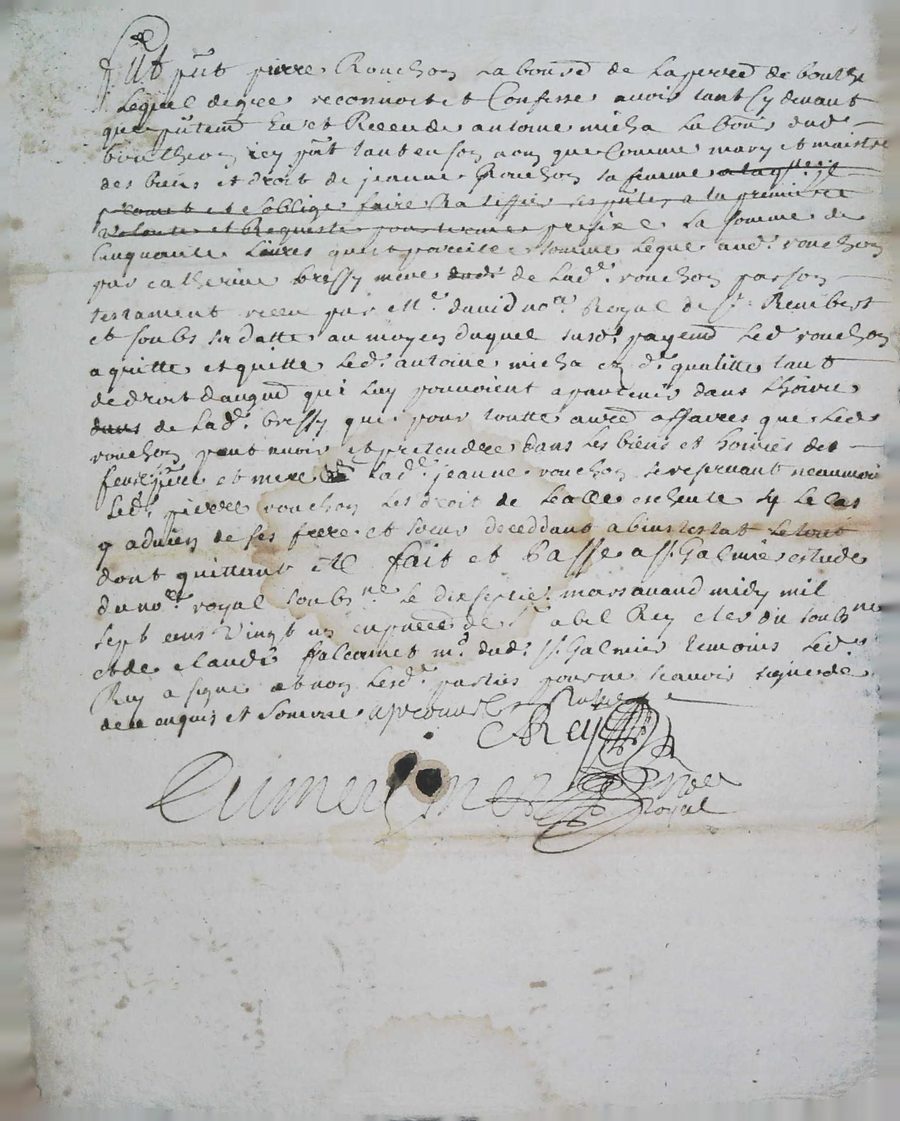 fût pñt pierre Rouchon Labour de Laperre de bouthe
Lequel de gre reconnoit et Confesse avoir tant cy devant
que pñtem Eu et Receu de antoine micha Labour dud
boutheon icy pñt tant en son nom que Comme mary et maistre
des biens et droit de jeanne Rouchon sa femme a laqlle il
promet et s'oblige faire Ratiffier ses pñtes a la premiere
volonté et Requeste pour terme prefixe La somme de
Cinquante Livres que pareille somme legue aud. rouchon
par catherine bressy mere dud de Lad. rouchon par son
testament receu par Me david nore Royal de St Rembert
et soubs sa datte au moyen duquel susd. payem Led rouchon
a quitte et quitte Led. antoine micha en d. quallitte tant
de droit daugm qui Luy pouvoient apartenir dans Lhoirie
dans de Lad. bressy que pour toutte autre affaires que Led
rouchon peut avoir et pretendre dans les biens et hoiries des
feus pere et mere de Lad. jeanne rouchon se reservant neanmoin
Led. pierre rouchon Les droit de Lealle escheute sy Le cas
y advien de ses frere et sœur deceddant abintestat Le tout
dont quittant etc fait et passe a St Galmier estude
du nore royal soubsne Le dixseptie mars avand midy mil
sept cens vingt un en pñce de Sr abel Rey clerc du soubsne
et de claude falconnet md dud. St Galmier temoins Led.
Rey a signe et non Lesd. parties pour ne scavoir signer de
ce enquis et somme approuvé
Rey
nore
royal